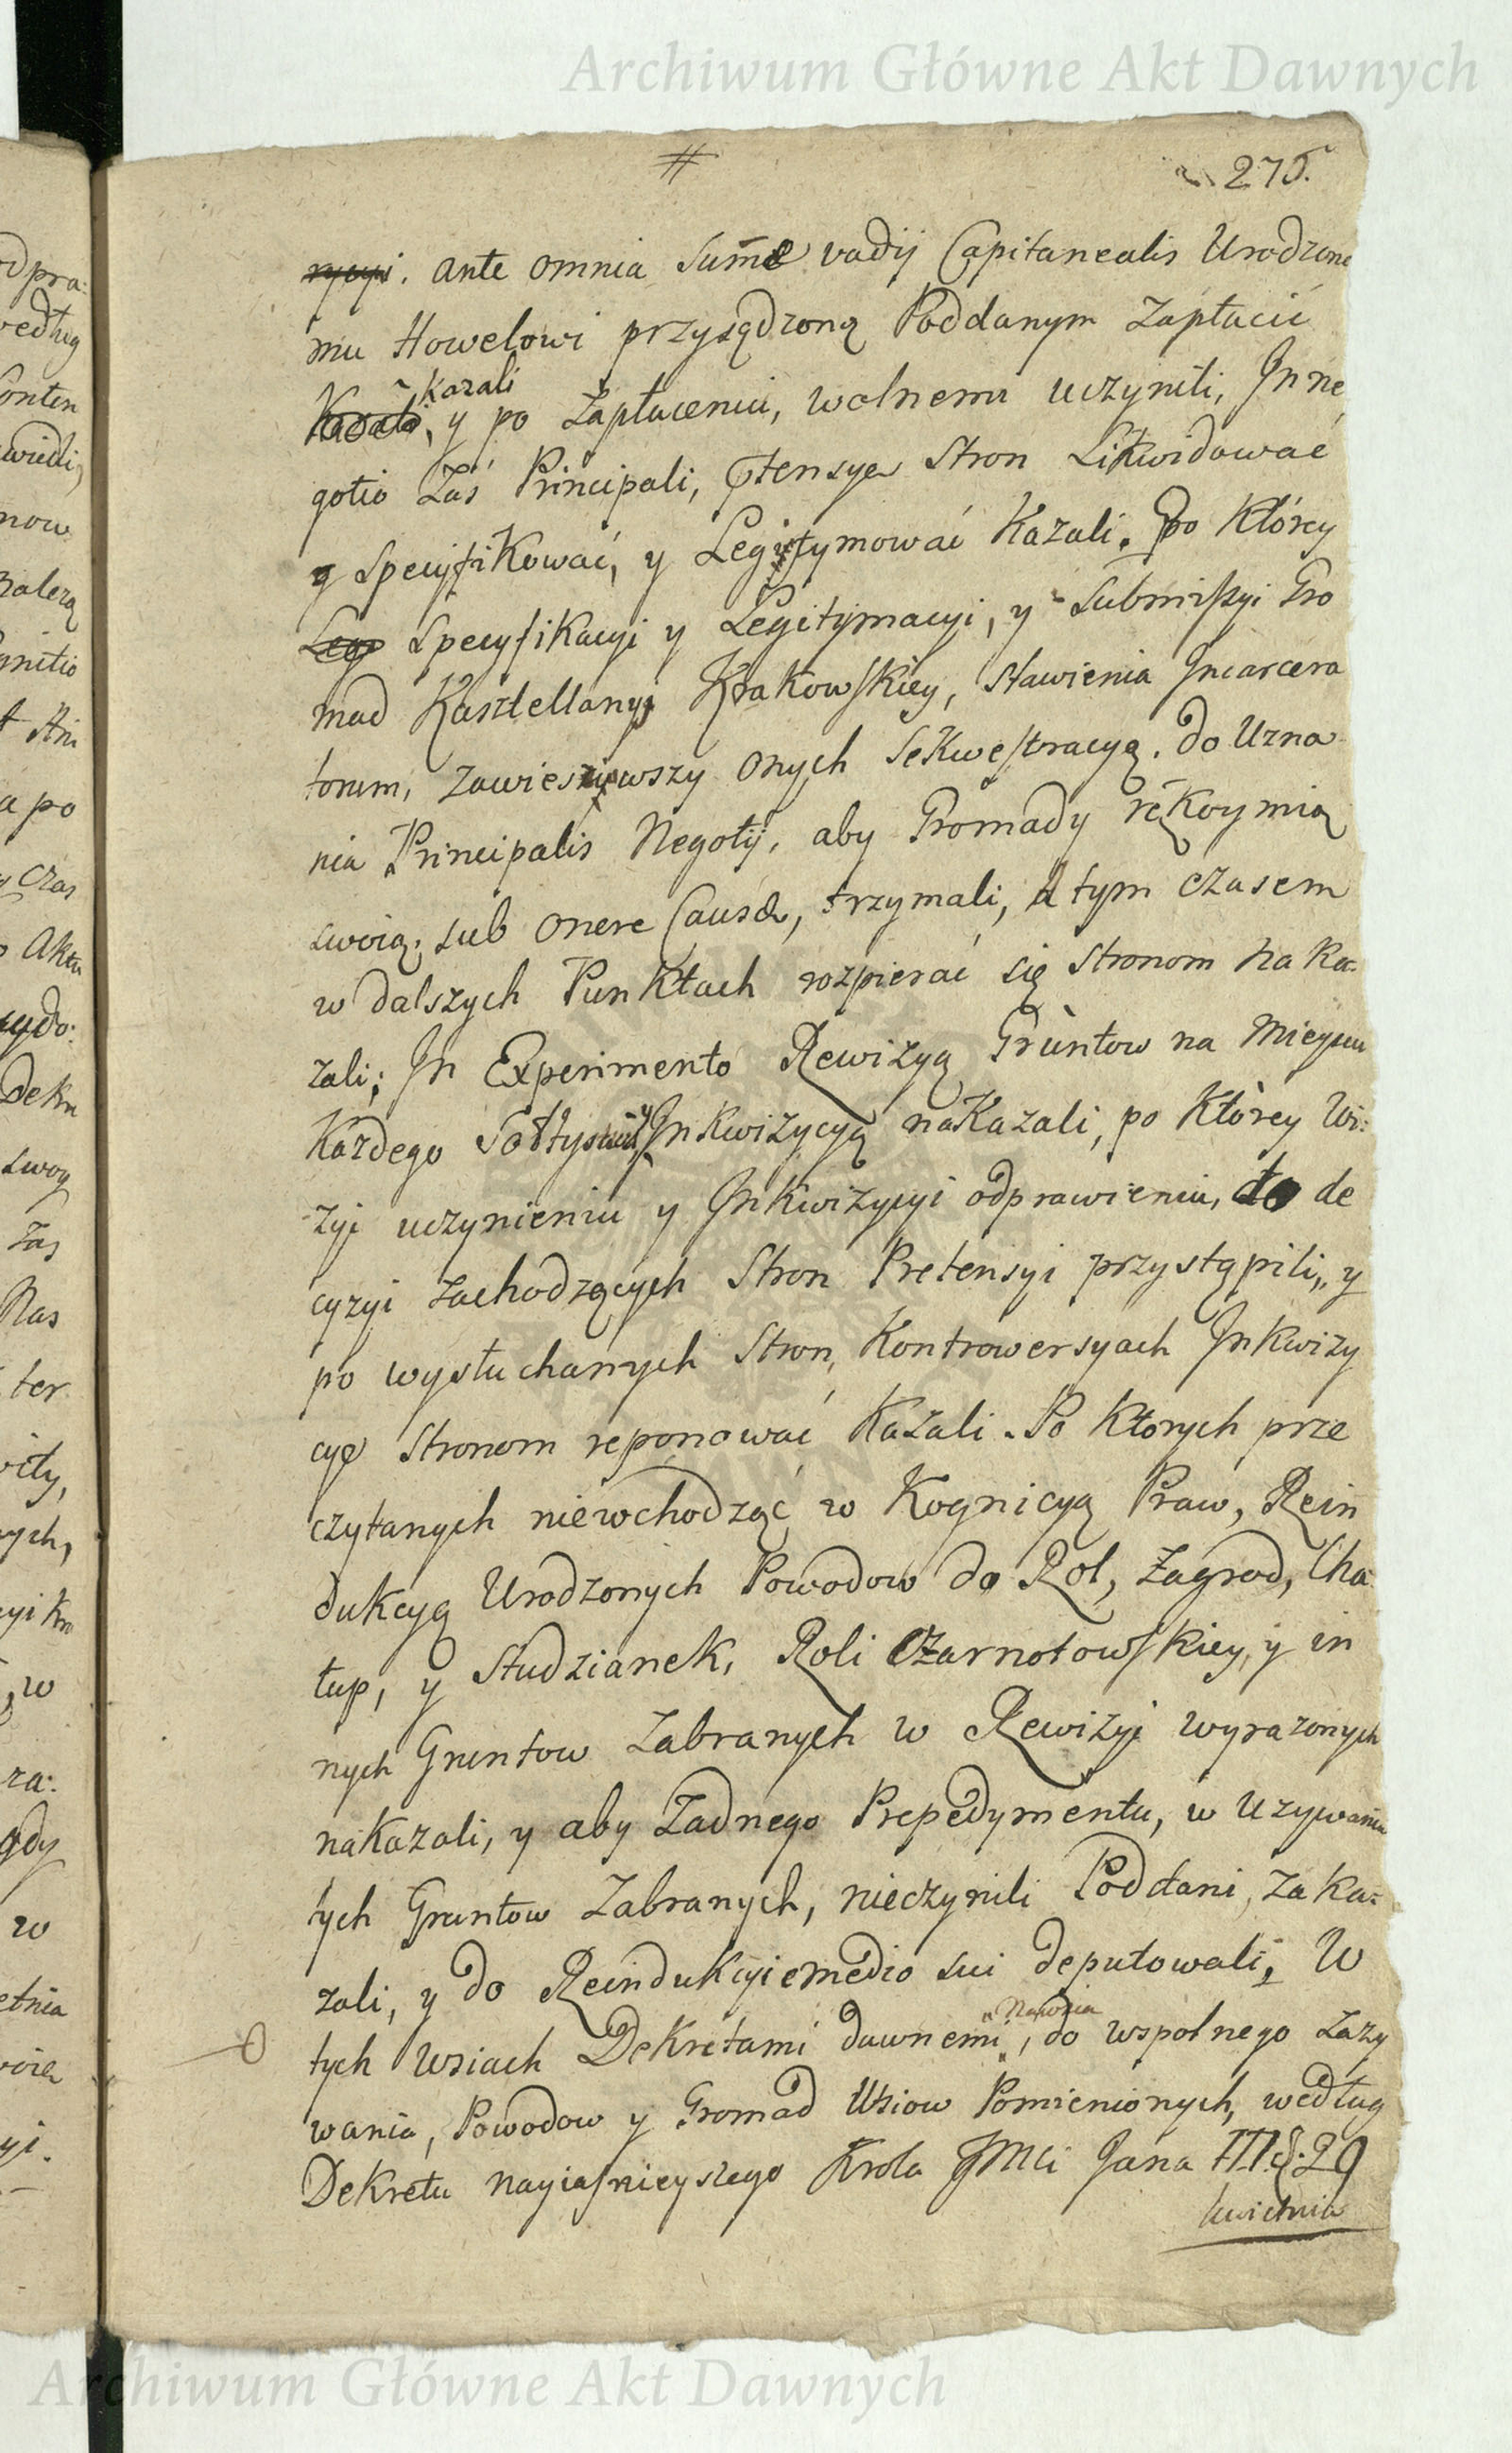 Archiwum Główne Akt Dawnych
#
275.
ryeyi. ante omnia Summe vadij Capitanealis Urodzone
mu Howelowi przysądzoną Poddanym Zapłacić
Kazali
Kazali, y po Zapłaceniu, wolnemi uczynili, In ne
gotio Zaś Principali, Ptensye Stron Likwidować
y Specyfikować, y Legitymować Kazali. Po Którey
Leg Specyfikacyi y Legitymacyi, y Submissyi Gro
mad Kasztellanyi Krakowskiey, Stawienia Incarcera
torum, Zawiesiwszy onych Sekwestracyą. do Uzna
nia Principalis Negotij, aby Gromady rękoymią
swoią, sub onere Causæ, trzymali, a tym czasem
w dalszych Punktach rozpierać się Stronom naka
zali; In Experimento Rewizyą Gruntow na Mieyscu
Każdego Sołtystwa, y Inkwizycyą nakazali, po Którey Wi:
zyi uczynieniu y Inkwizycyi odprawieniu, do de
cyzyi zachodzących Stron Pretensyi przystąpili, y
po wysłuchanych Stron, Kontrowersyach Inkwizy
cye Stronom reponować Kazali. Po Ktorych prze
czytanych niewchodząc w Kognicyą Praw, Rein
dukcyą Urodzonych Powodow do Rol, Zagrod, Cha
łup, y Studzianek, Roli Czarnotowskiey, y in
nych Gruntow Zabranych w Rewizyi wyrazonych
nakazali, y aby Zadnego Prepedymentu, w Uzywaniu
tych Gruntow Zabranych, nieczynili Poddani, Zaka:
zali, y do Reindukcyi emedio sui deputowali, W
tych Wsiach Dekretami dawnemi, do wspolnego Zazy
wania, Powodow y Gromad Wsiow Pomienionych, według
Dekretu nayiasnieyszego Krola JMci Jana III. d: 29
kwietnia
Archiwum Główne Akt Dawnych